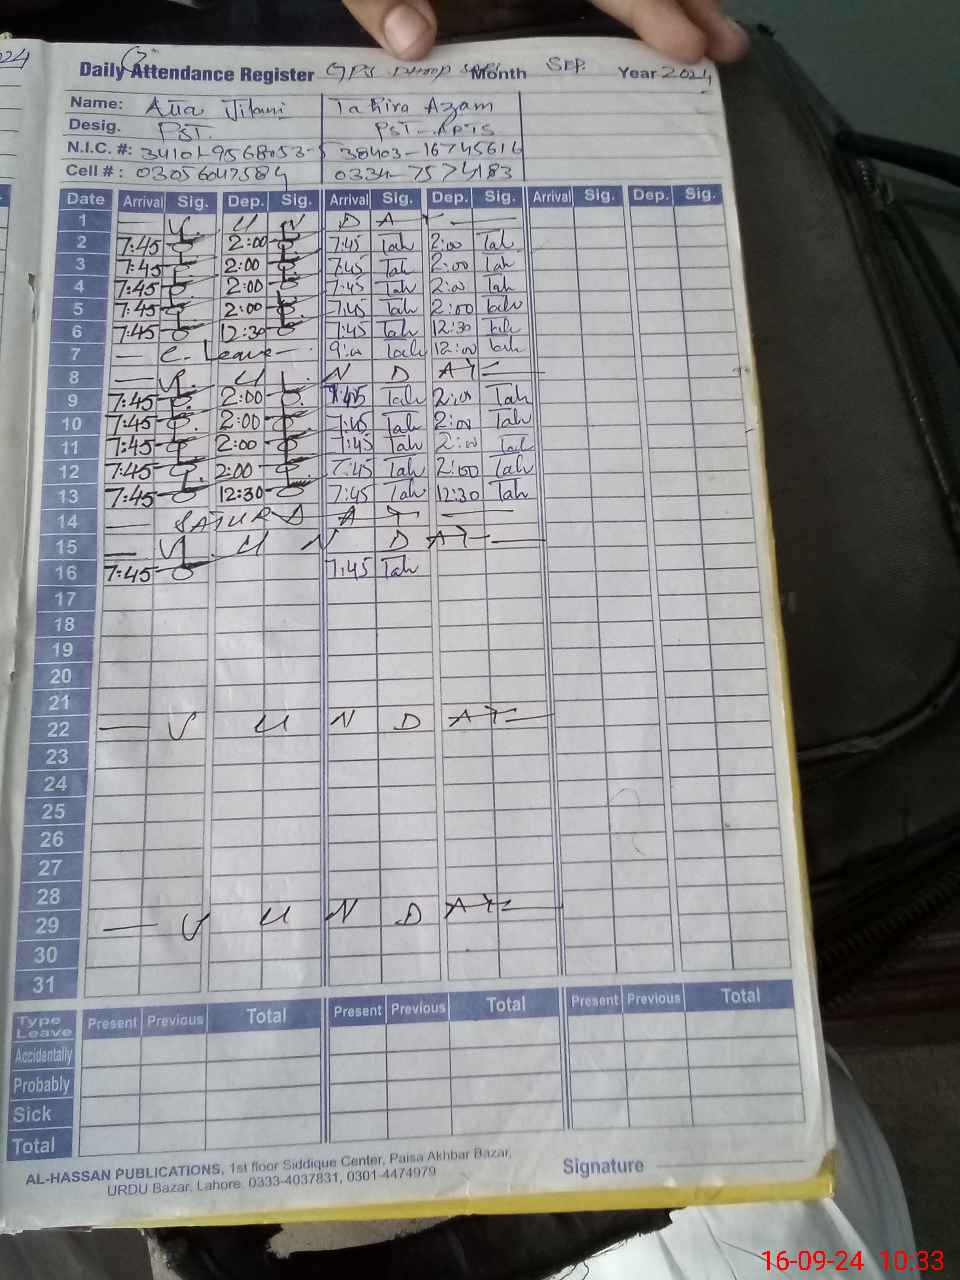 Daily Attendance Register GPS Month SEP. Year 2024
Name: Jilani Tahira Azam
Desig. PST. PST
N.I.C. #: 34101-9568053-5 38403-16745616
Cell #: 03056047584 0334-7574183
Date Arrival Sig. Dep. Sig. Arrival Sig. Dep. Sig. Arrival Sig. Dep. Sig.
1 — S U N D A Y —
2 7:45 2:00 7:45 Tah 2:00 Tah
3 7:45 2:00 7:45 Tah 2:00 Tah
4 7:45 2:00 7:45 Tah 2:00 Tah
5 7:45 2:00 7:45 Tah 2:00 Tah
6 7:45 12:30 7:45 Tah 12:30 Tah
7 — C. Leave — 9:00 Tah 12:00 Tah
8 — S U N D A Y —
9 7:45 2:00 7:45 Tah 2:00 Tah
10 7:45 2:00 7:45 Tah 2:00 Tah
11 7:45 2:00 7:45 Tah 2:00 Tah
12 7:45 2:00 7:45 Tah 2:00 Tah
13 7:45 12:30 7:45 Tah 12:30 Tah
14 — SATURDAY —
15 — S U N D A Y —
16 7:45 7:45 Tah
17
18
19
20
21
22 — S U N D A Y —
23
24
25
26
27
28
29 — S U N D A Y —
30
31
Type Leave Present Previous Total Present Previous Total Present Previous Total
Accidentally
Probably
Sick
Total
AL-HASSAN PUBLICATIONS, 1st floor Siddique Center, Paisa Akhbar Bazar,
URDU Bazar, Lahore. 0333-4037831, 0301-4474979
Signature
16-09-24 10:33